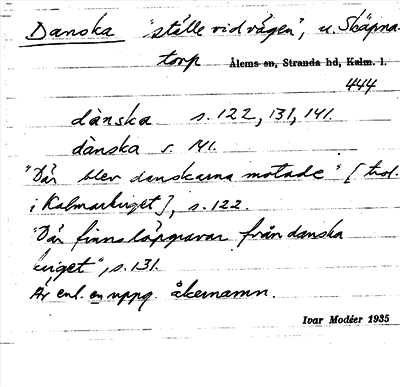 Danska "ställe vid vägen", u. Skäpna-
torp Ålems sn, Stranda hd, Kalm. l.
444
dànska s. 122, 131, 141.
dànska s. 141.
"Där blev danskarna motade" [trol.
i Kalmarkriget], s. 122.
"Där finns löpgravar från danska
kriget", s. 131.
Är enl. en uppg. åkernamn.
Ivar Modéer 1935